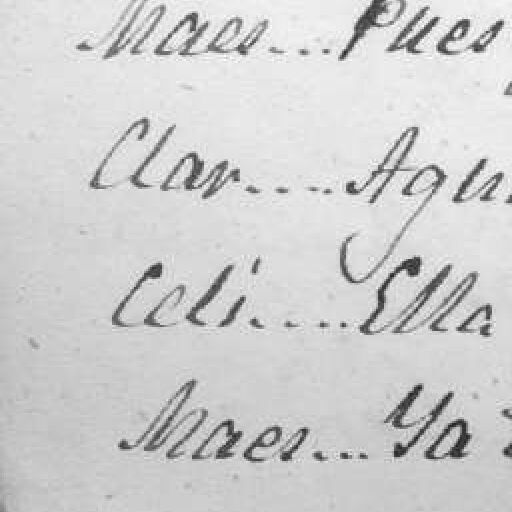 Maes....Pues
Clar.....Agu
Celi.....Ella
Maes....Ya